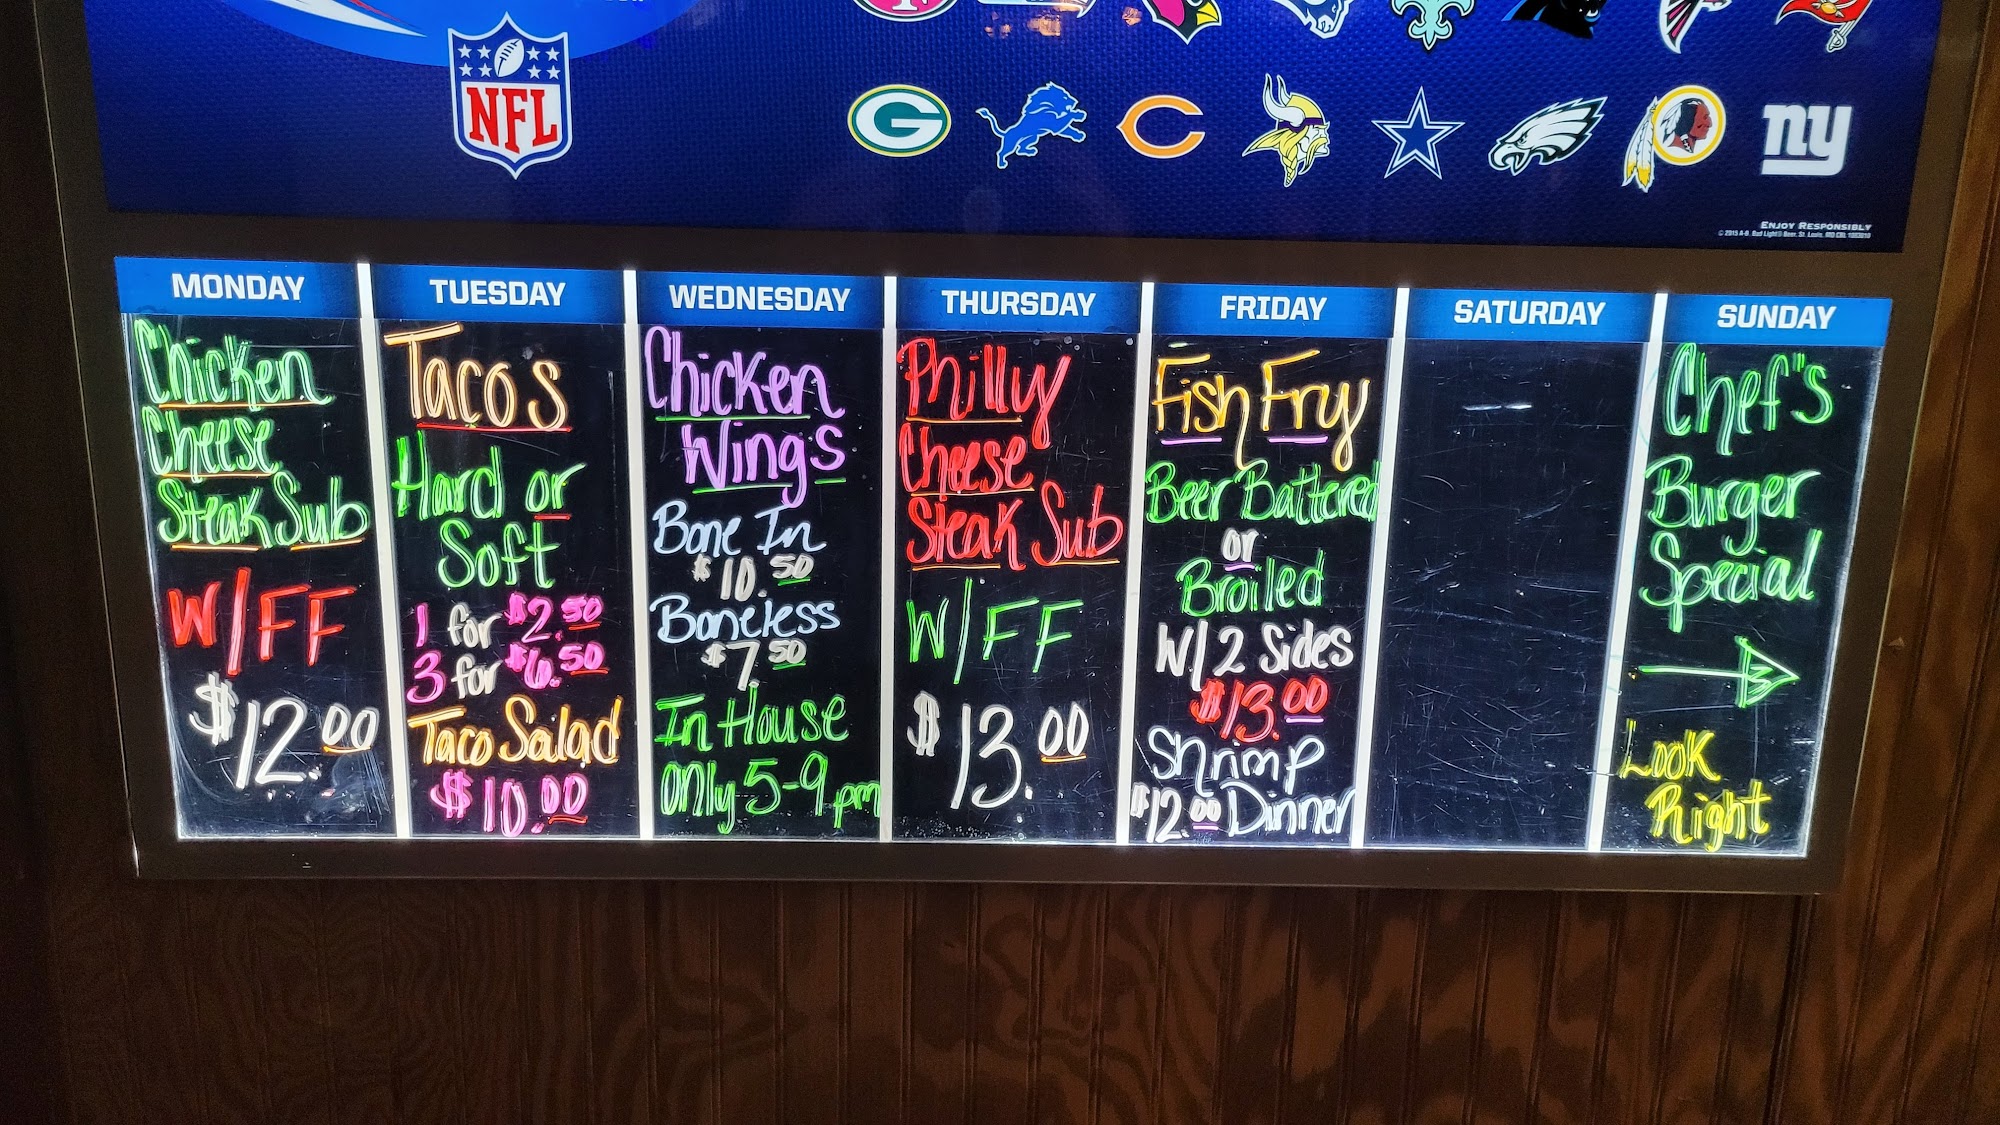 NFL
G
C
ny
ENJOY RESPONSIBLY
MONDAY
Chicken
Cheese
Steak Sub
W/FF
$12.00
TUESDAY
Tacos
Hard or
Soft
1 for $2.50
3 for $6.50
Taco Salad
$10.00
WEDNESDAY
Chicken
Wings
Bone In
$10.50
Boneless
$7.50
In House
only 5-9 pm
THURSDAY
Philly
Cheese
Steak Sub
W/FF
$13.00
FRIDAY
Fish Fry
Beer Battered
or
Broiled
W/2 Sides
$13.00
Shrimp
$12.00 Dinner
SATURDAY
SUNDAY
Chef"s
Burger
Special
Look
Right